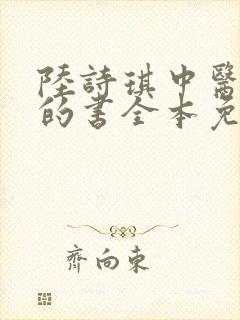 陸詩琪中醫
的書全本免
齊向東